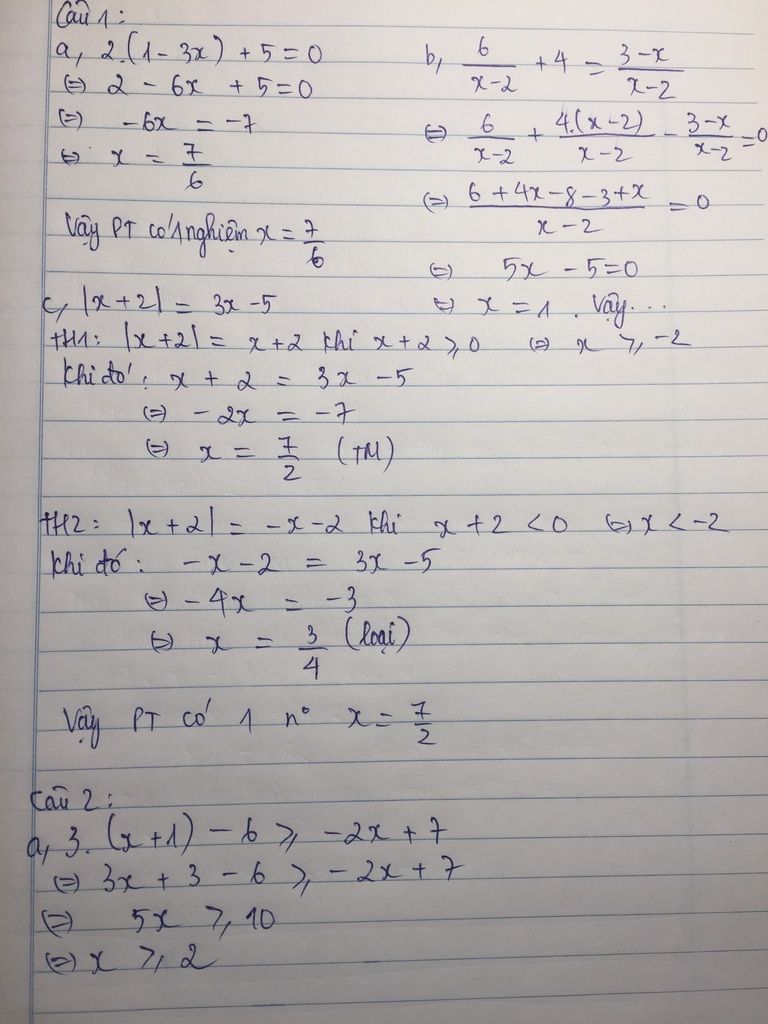 Câu 1:
a, 2.(1-3x) + 5 = 0
(=) 2 - 6x + 5 = 0
(=) -6x = -7
(=) x = 7/6
Vậy PT có 1 nghiệm x = 7/6
b, 6/(x-2) + 4 = (3-x)/(x-2)
(=) 6/(x-2) + 4.(x-2)/(x-2) - (3-x)/(x-2) = 0
(=) (6 + 4x - 8 - 3 + x)/(x-2) = 0
(=) 5x - 5 = 0
(=) x = 1. Vậy...
c, |x+2| = 3x - 5
TH1: |x+2| = x+2 khi x+2 ⩾ 0 (=) x ⩾ -2
Khi đó: x + 2 = 3x - 5
(=) -2x = -7
(=) x = 7/2 (TM)
TH2: |x+2| = -x-2 khi x+2 < 0 (=) x < -2
Khi đó: -x-2 = 3x - 5
(=) -4x = -3
(=) x = 3/4 (loại)
Vậy PT có 1 n° x = 7/2
Câu 2:
a, 3.(x+1) - 6 ⩾ -2x + 7
(=) 3x + 3 - 6 ⩾ -2x + 7
(=) 5x ⩾ 10
(=) x ⩾ 2